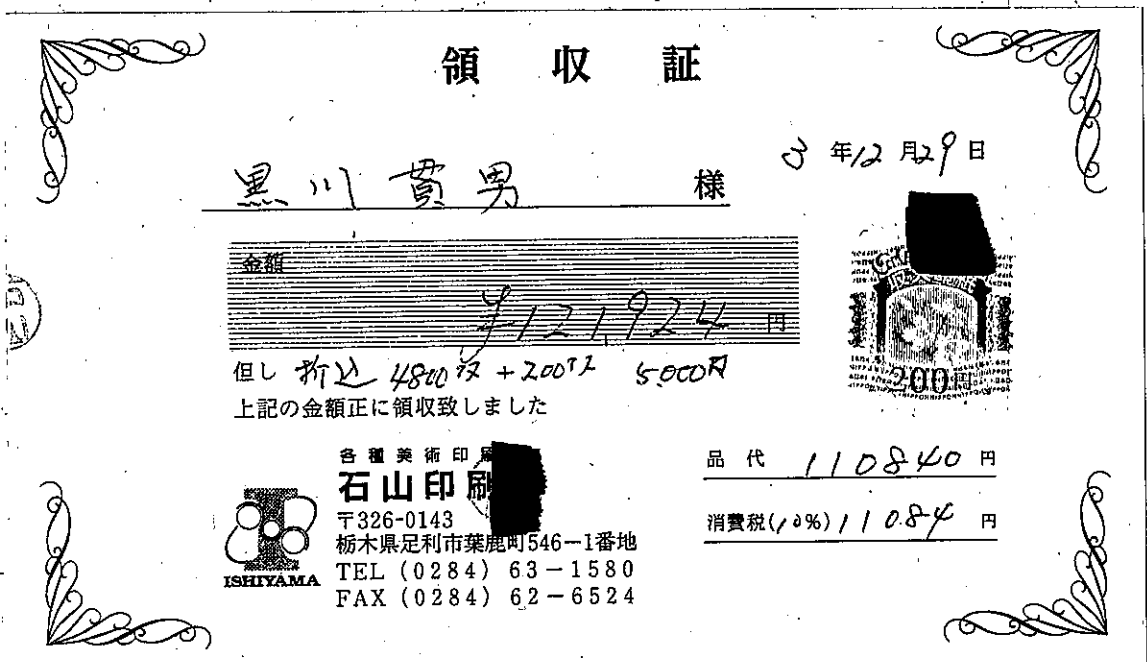 領収証
3年12月29日
黒川貫男 様
金額
¥121,924 円
但し 折込 4800枚+200枚 5000円
上記の金額正に領収致しました
200円
各種美術印刷
石山印刷
〒326-0143
栃木県足利市葉鹿町546-1番地
TEL (0284) 63-1580
FAX (0284) 62-6524
ISHIYAMA
品代 110840 円
消費税(10%) 11084 円